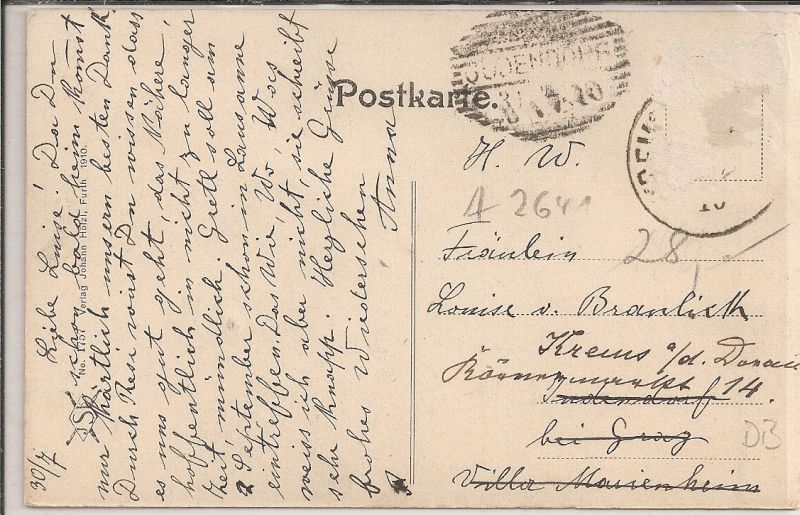 30/7
Liebe Luise! Da Du
schon bald heim komst
nur kärtlich unsern besten Dank.
Durch Resi wirst Du wissen dass
es uns gut geht, das Nähere,
hoffentlich in nicht zu langer
Zeit, mündlich. Gretl soll am
2 September schon in Lausanne
eintreffen. Das Wie, Wo, Was
weiss ich aber nicht, sie schreibt
sehr knapp. Herzliche Grüsse
frohes Wiedersehen
Anna
No. 1101 Verlag Johann Hölzl, Fürth 1910.
Postkarte.
JUDENDORF
10
H. W.
A 2641
28
Fräulein
Louise v.
Krems a/d. Donau
14.
Judendorf
bei Graz
Villa Marienheim
DB